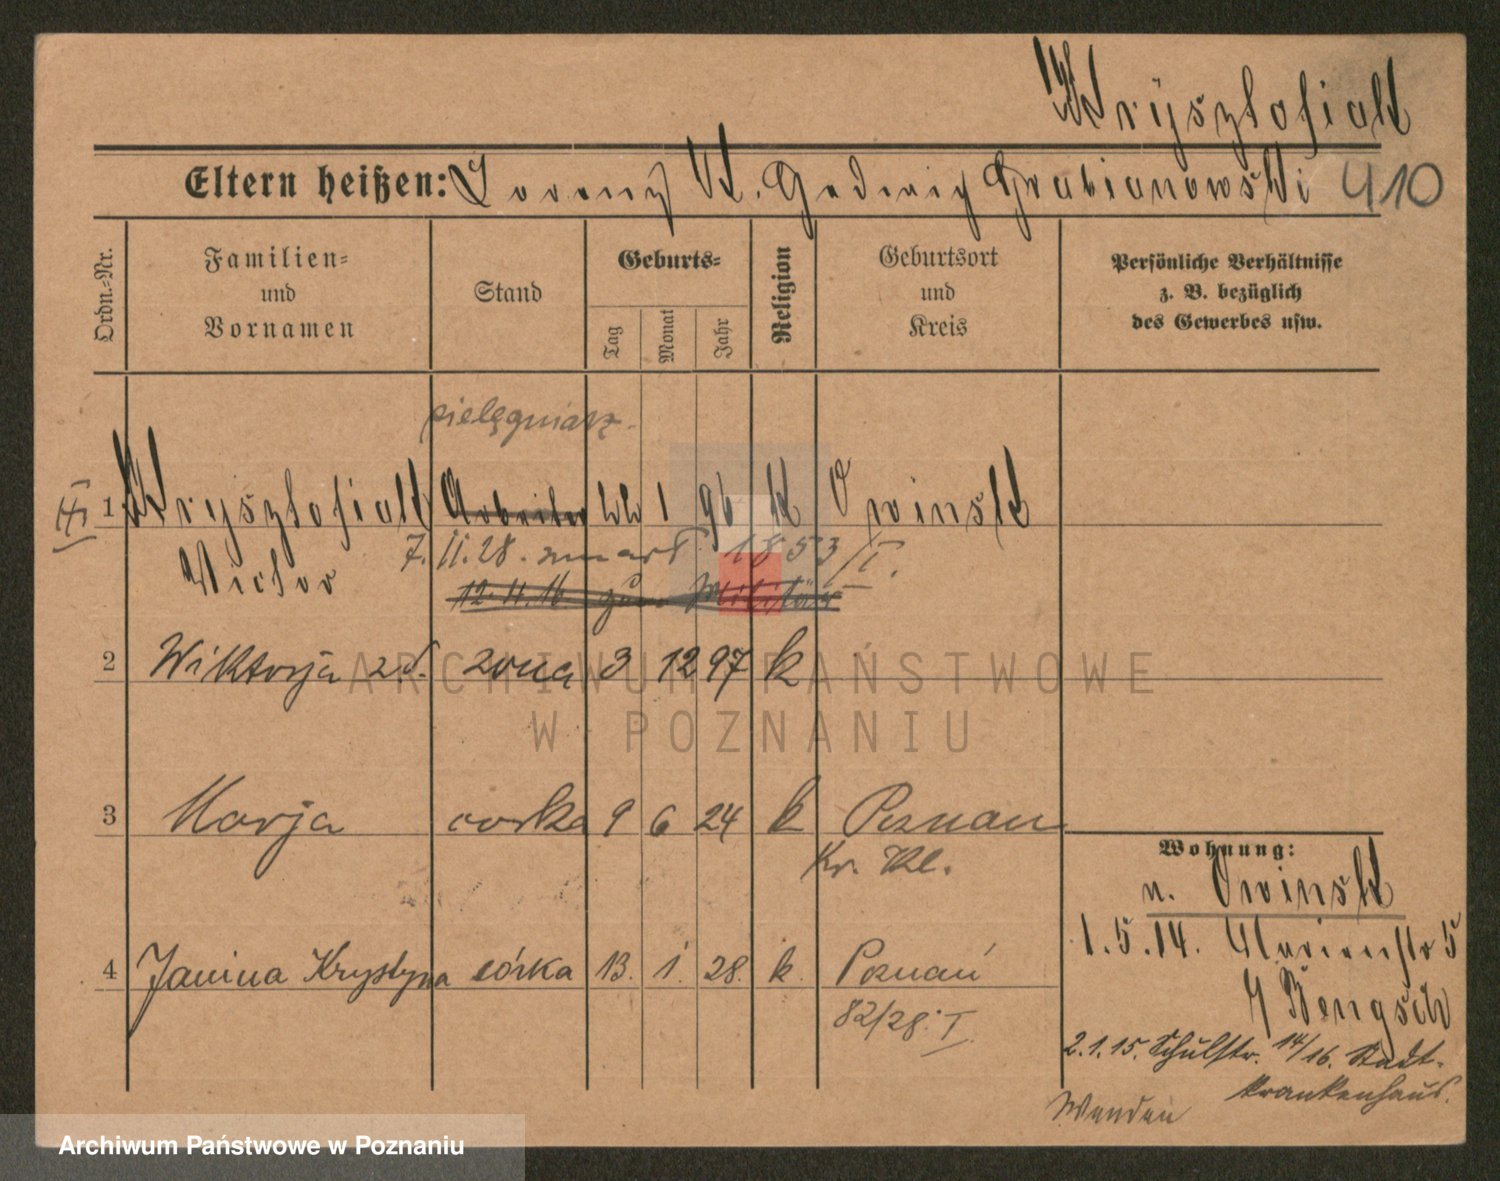 Krysztofiak
Eltern heißen: Lorenz K. Hedwig Grabianowski 410
Ordn.=Nr.
Familien=
und
Vornamen
Stand
Geburts=
Tag
Monat
Jahr
Religion
Geburtsort
und
Kreis
Persönliche Verhältnisse
z. B. bezüglich
des Gewerbes usw.
pielęgniarz.
1 Krysztofiak Arbeiter 1 96 K Owinsk
Victor 7. 11. 28. zmarł 1853/I.
12. 11. 16 zum Militär
2 Wiktorja z d. żona 3 12 97 k
3 Marja corka 9 6 24 k Poznan
Kr. Kl.
4 Janina Krystyna córka 13. 1. 28. k. Poznań
82/28. I
Wohnung:
n. Owinsk
1. 5. 14. Marienstr 5
Bengsch
2. 1. 15. Schulstr. 14/16. Stadt-
krankenhaus.
Wenden
ARCHIWUM PAŃSTWOWE
W POZNANIU
Archiwum Państwowe w Poznaniu